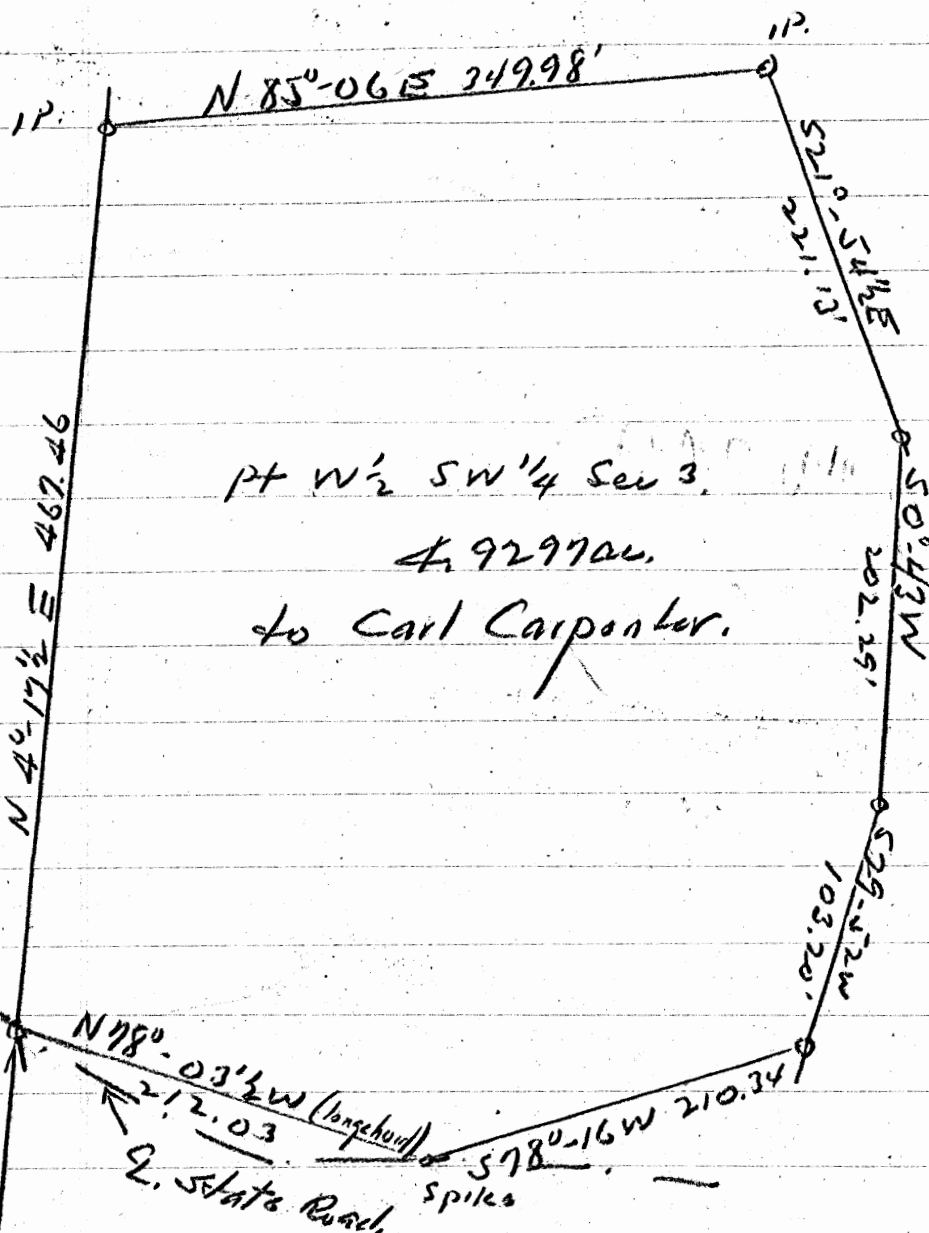 I.P.
N 85°-06 E 349.98'
I.P.
S21°-54½E
221.13'
S0°-43W
202.25'
S29-52W
103.20'
S78°-16W 210.34
spikes
N78°-03'½W (longchord)
212.03
State Road
N 4°-17½ E 467.46
pt W½ SW¼ Sec 3.
4.9297ac.
to Carl Carpenter.